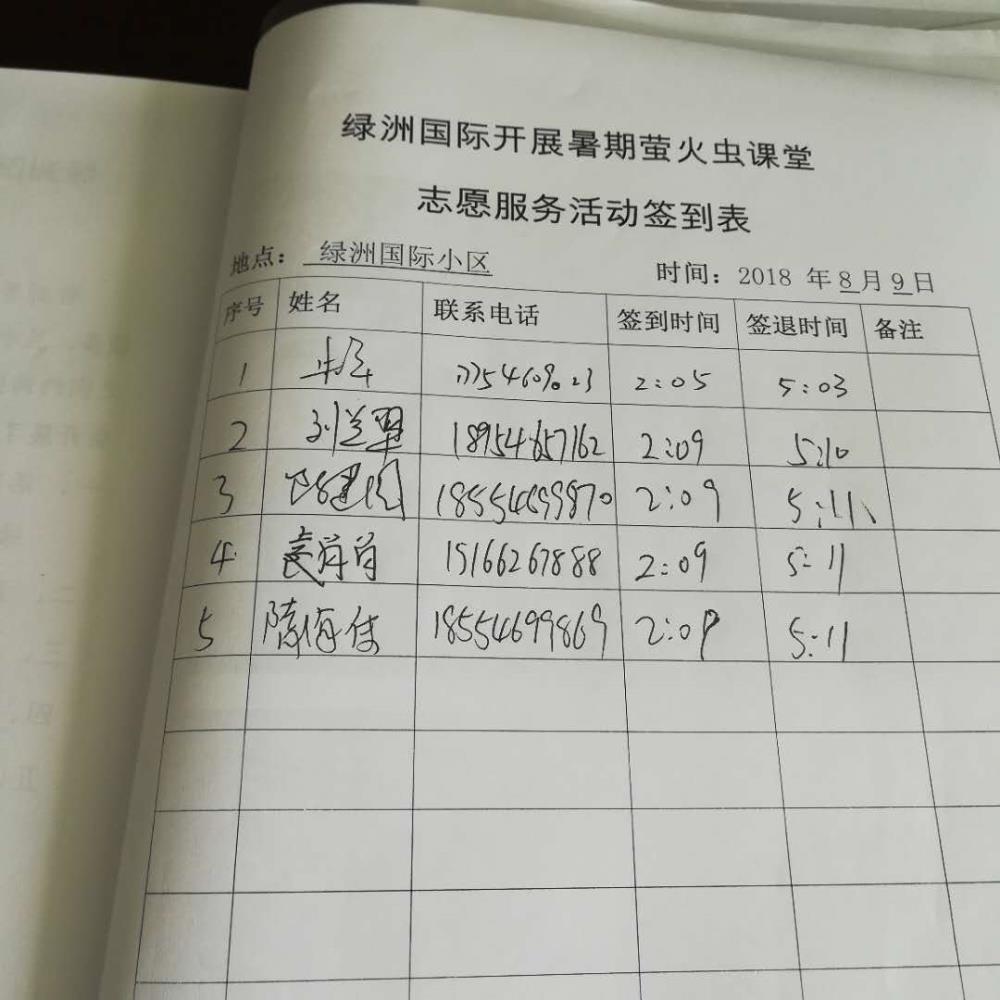 绿洲国际开展暑期萤火虫课堂
志愿服务活动签到表
地点： 绿洲国际小区 时间：2018 年 8 月 9 日
序号 姓名 联系电话 签到时间 签退时间 备注
1 2:05 5:03
2 刘兰翠 18954657162 2:09 5:10
3 18554699870 2:09 5:11
4 袁肖肖 15166267888 2:09 5:11
5 陈海傣 18554699869 2:09 5:11